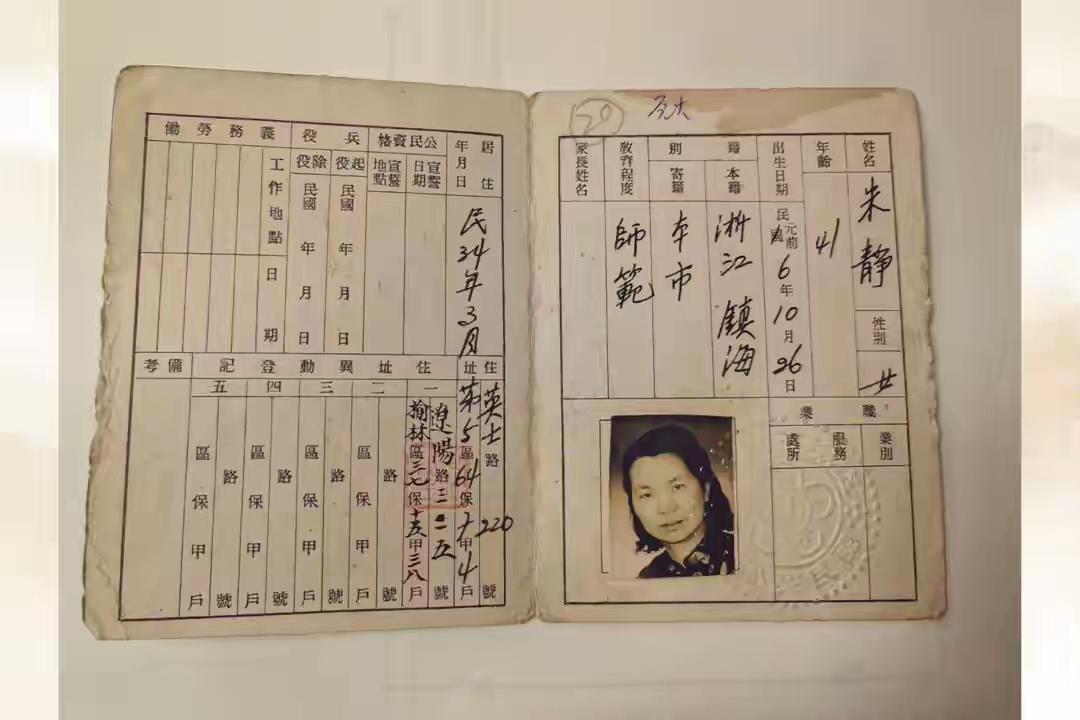 20
姓名 朱靜
性別 女
年齡 41
出生日期 民國元前6年10月26日
籍別
本籍 浙江鎮海
寄籍 本市
教育程度 師範
家長姓名
職業
業別
服務處所
居住年月日 民34年3月
公民資格
宣誓日期
宣誓地點
兵役
起役 民國 年 月 日
除役 民國 年 月 日
義務勞働
工作地點
日期
住址
英士路220號
第5區64保 甲4戶
住址異動登記
一
遼陽路二二一五號
榆林區三七保十五甲三八戶
二
路 號
區 保 甲 戶
三
路 號
區 保 甲 戶
四
路 號
區 保 甲 戶
五
路 號
區 保 甲 戶
備考